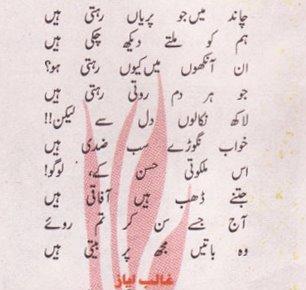 چاند میں جو پریاں رہتی ہیں
ہم کو ملتے دیکھ چکی ہیں
ان آنکھوں میں کیوں رہتی ہو؟
جو ہر دم روتی رہتی ہیں
لاکھ نکالوں دل سے لیکن!!
خواب نگوڑے سب ضدی ہیں
اس ملکوتی حسن کے، لوگو!
جتنے ڈھب ہیں آفاقی ہیں
آج جسے سن کر تم روئے
وہ باتیں مجھ پر بیتی ہیں
غالب ایاز